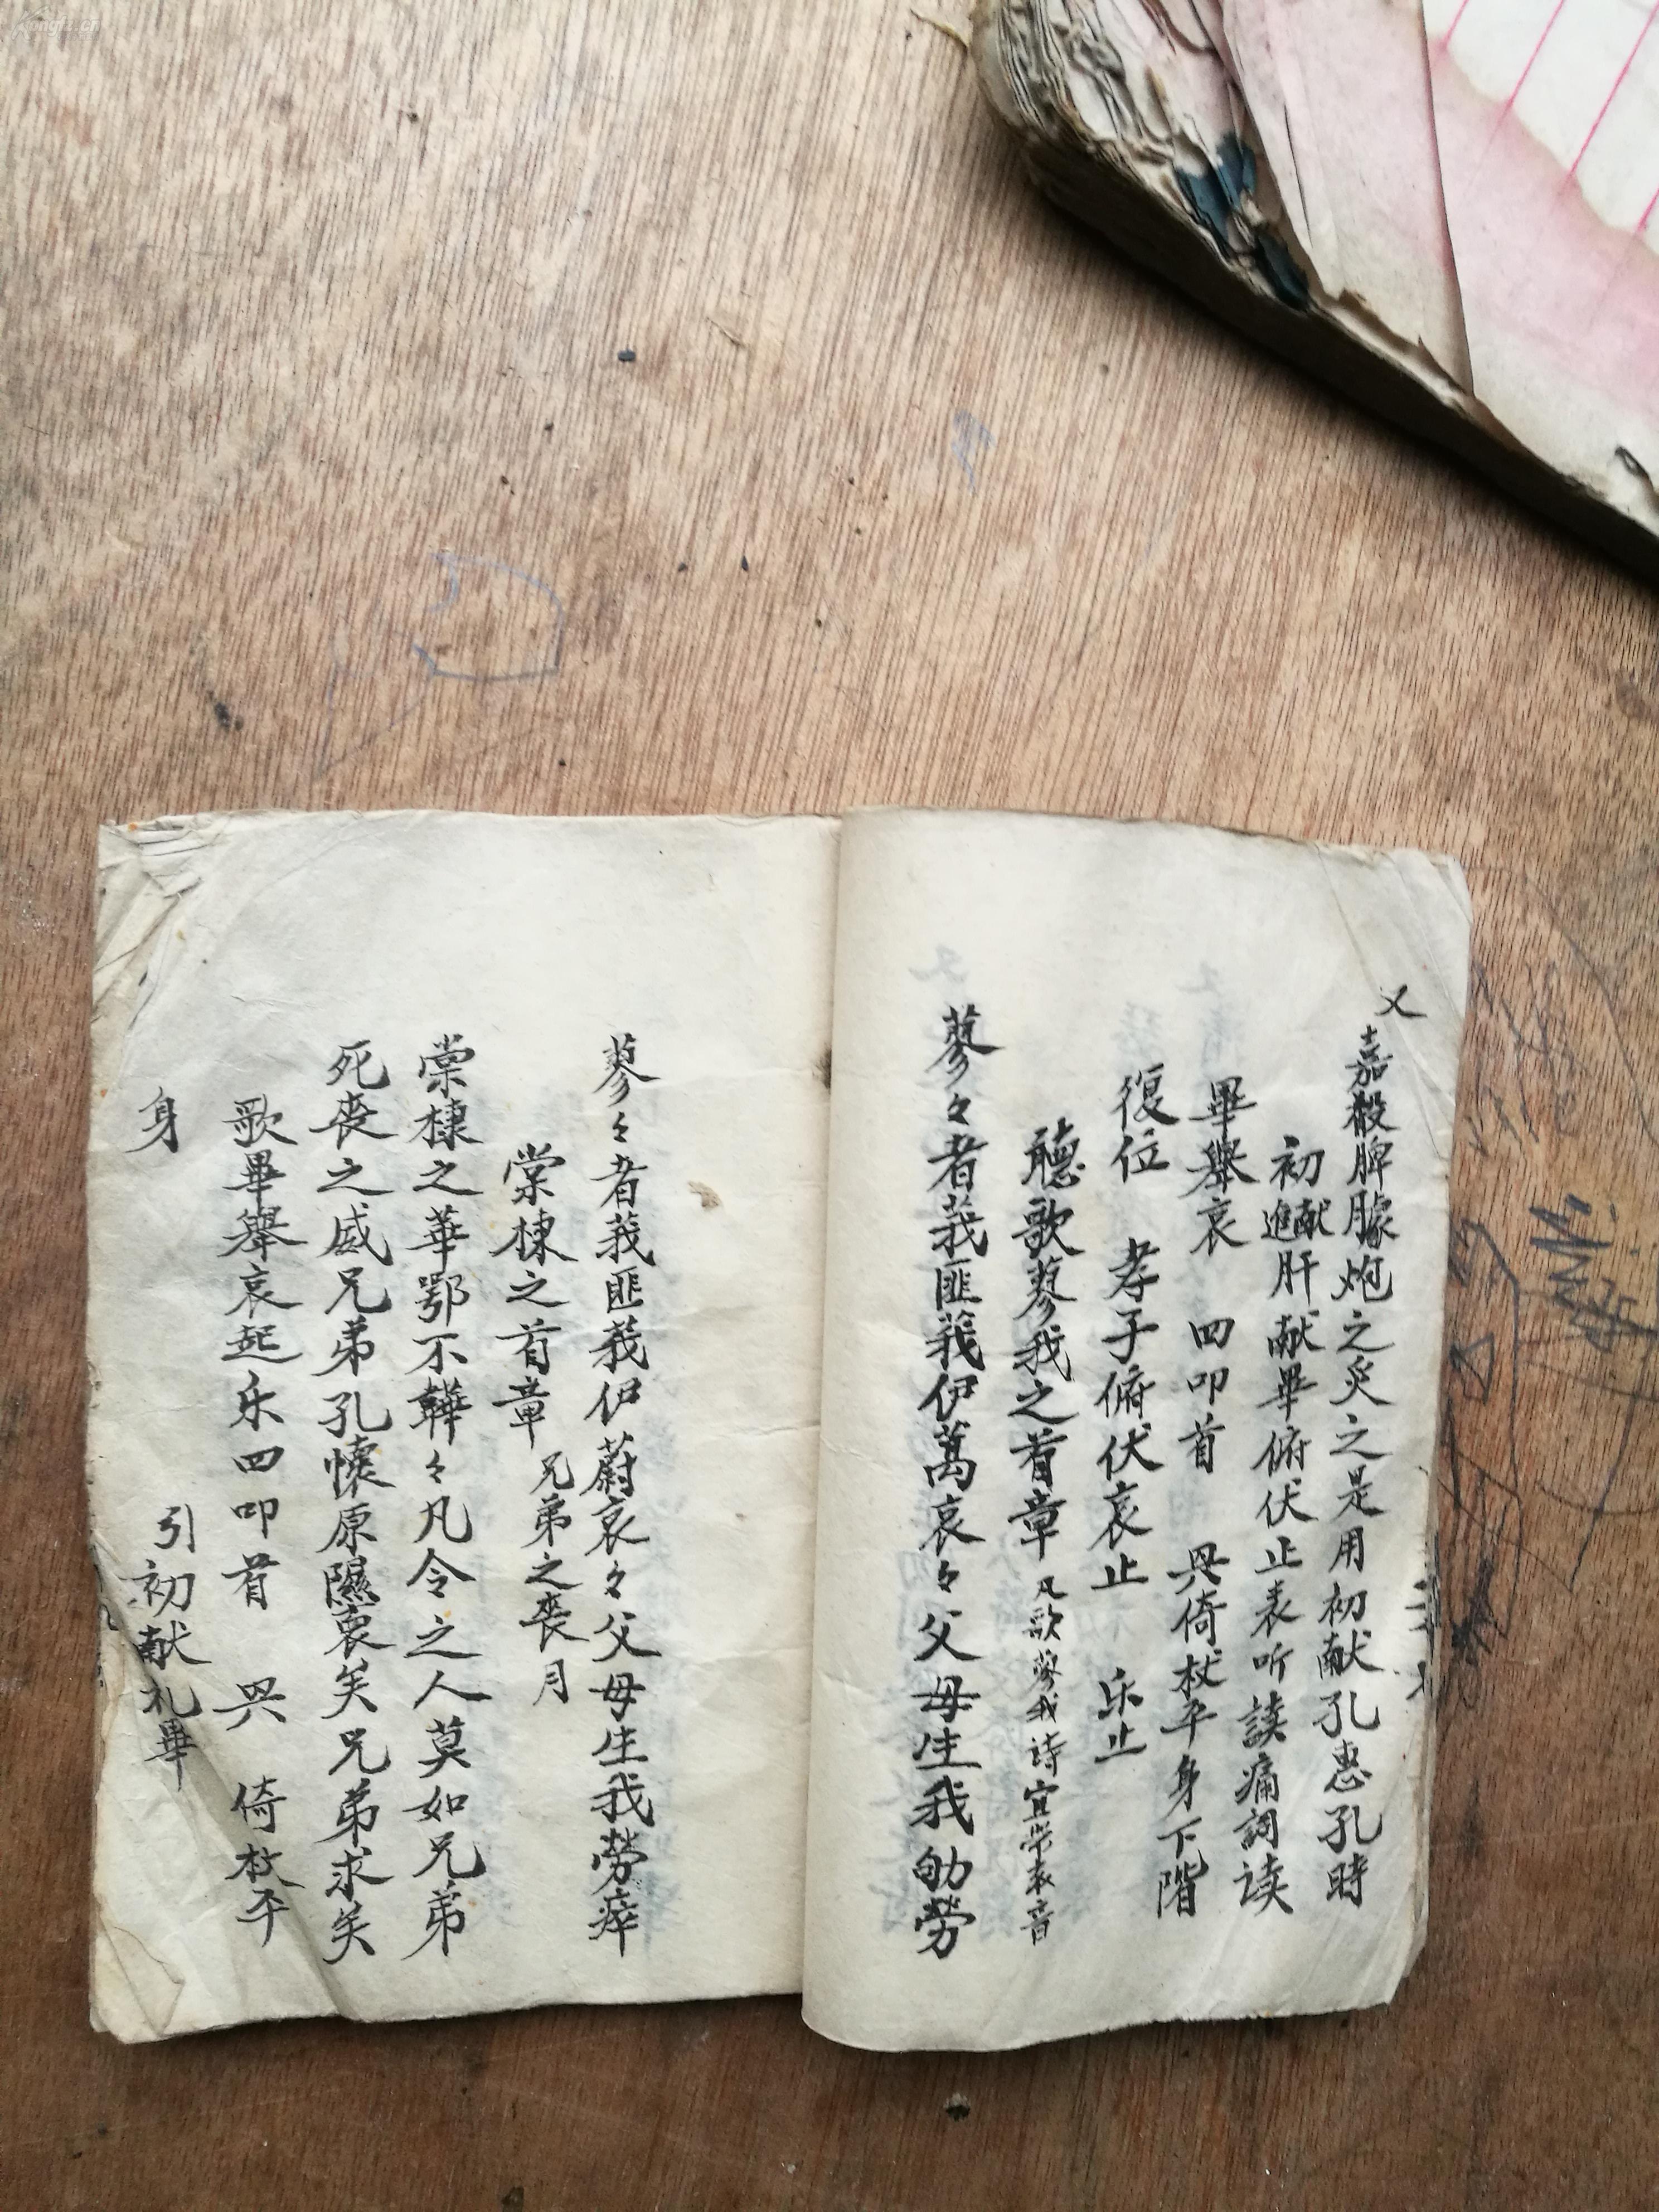 又
嘉殽脾臄炮之炙之是用初献孔惠孔時
初進献肝献畢俯伏止表听讀痛詞读
畢舉哀 四叩首 兴倚杖平身下階
復位 孝子俯伏哀止 乐止
聽歌蓼我之首章 凡歌蓼我诗宜常哀音
蓼々者莪匪莪伊蒿哀々父母生我劬勞
蓼々者莪匪莪伊蔚哀々父母生我勞瘁
棠棣之首章 兄弟之喪用
棠棣之華鄂不韡々凡今之人莫如兄弟
死喪之戚兄弟孔懷原隰裒矣兄弟求矣
歌畢舉哀起乐四叩首 兴 倚杖平
身 引初献礼畢
kongfz.cn